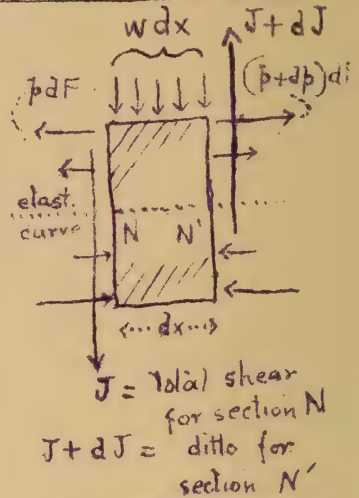 w dx
J + dJ
p dF
(p+dp)d
elast.
curve
N N'
dx
J = Total shear
for section N
J + dJ = ditto for
section N'